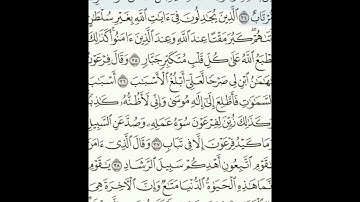 مُّرْتَابٌ ٣٤ ٱلَّذِينَ يُجَٰدِلُونَ فِىٓ ءَايَٰتِ ٱللَّهِ بِغَيْرِ سُلْطَٰنٍ
أَتَىٰهُمْ كَبُرَ مَقْتًا عِندَ ٱللَّهِ وَعِندَ ٱلَّذِينَ ءَامَنُوا۟ كَذَٰلِكَ
يَطْبَعُ ٱللَّهُ عَلَىٰ كُلِّ قَلْبِ مُتَكَبِّرٍ جَبَّارٍ ٣٥ وَقَالَ فِرْعَوْنُ
يَٰهَٰمَٰنُ ٱبْنِ لِى صَرْحًا لَّعَلِّىٓ أَبْلُغُ ٱلْأَسْبَٰبَ ٣٦ أَسْبَٰبَ
ٱلسَّمَٰوَٰتِ فَأَطَّلِعَ إِلَىٰٓ إِلَٰهِ مُوسَىٰ وَإِنِّى لَأَظُنُّهُۥ كَٰذِبًا
وَكَذَٰلِكَ زُيِّنَ لِفِرْعَوْنَ سُوٓءُ عَمَلِهِۦ وَصُدَّ عَنِ ٱلسَّبِيلِ
وَمَا كَيْدُ فِرْعَوْنَ إِلَّا فِى تَبَابٍ ٣٧ وَقَالَ ٱلَّذِىٓ ءَامَنَ
يَٰقَوْمِ ٱتَّبِعُونِ أَهْدِكُمْ سَبِيلَ ٱلرَّشَادِ ٣٨ يَٰقَوْمِ
إِنَّمَا هَٰذِهِ ٱلْحَيَوٰةُ ٱلدُّنْيَا مَتَٰعٌ وَإِنَّ ٱلْءَاخِرَةَ هِىَ